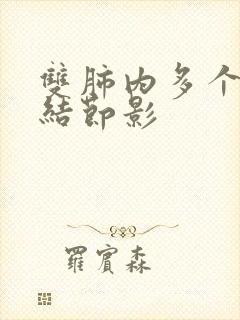 雙肺内多个
結節影
羅賓森